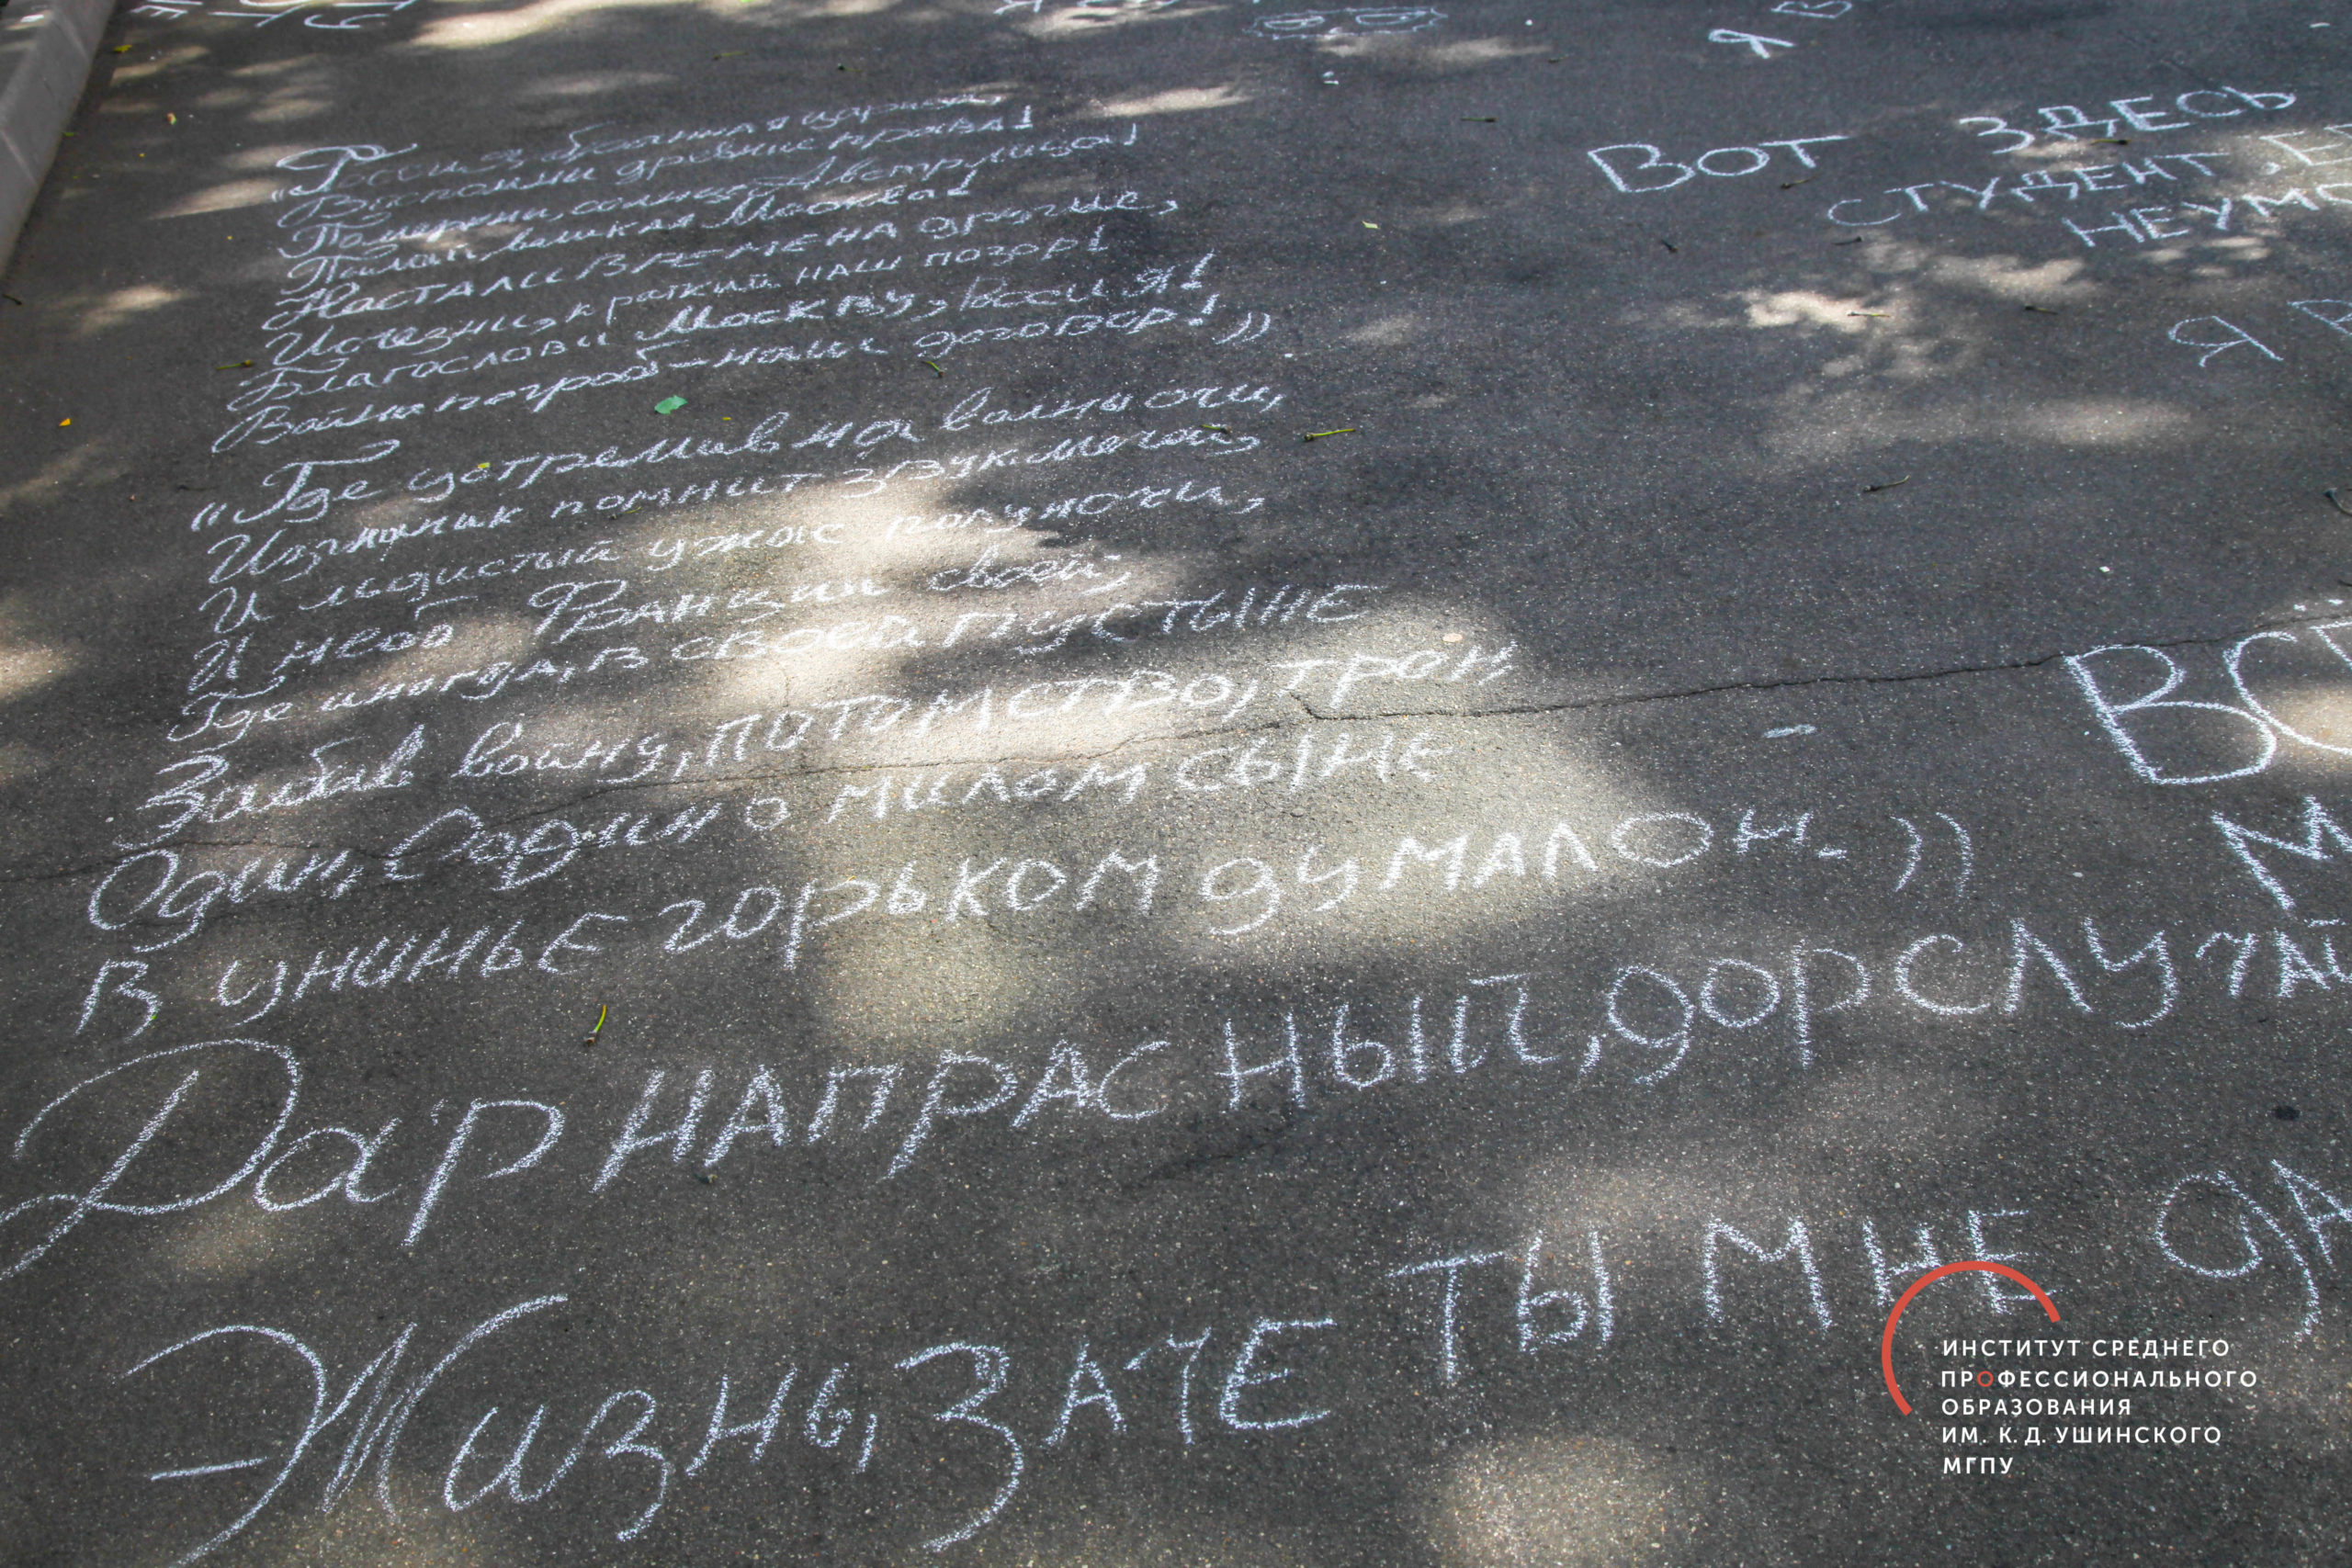 "Россия, бранная царица,
Воспомни древние права!
Померкни, солнце Австерлица!
Пылай, великая Москва!
Настали времена другие,
Исчезни, краткий наш позор!
Благослови Москву, Россия!
Война по гроб – наш договор!"
"Где устремив на волны очи,
Изгнанник помнит звук мечей,
И льдистый ужас полуночи,
И небо Франции своей;
Где иногда, в своей пустыне
Забыв войну, потомство, трон,
Один, один о милом сыне
В унынье горьком думал он."
Дар напрасный, дар случай
Жизнь, заче ты мне да
Я
ВОТ ЗДЕСЬ
СТУДЕНТ,
НЕУМО
Я
ВСЁ
М
ИНСТИТУТ СРЕДНЕГО
ПРОФЕССИОНАЛЬНОГО
ОБРАЗОВАНИЯ
ИМ. К. Д. УШИНСКОГО
МГПУ